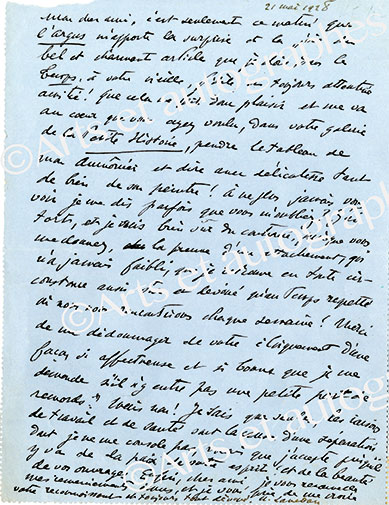 21 mai 1928
Mon cher ami, c'est seulement ce matin que
l'argus m'apporte la surprise et la joie du
bel et charmant article que je dois dans le
Temps, à votre vieille, fidèle et toujours attentive
amitié ! Que cela me fait donc plaisir et me va
au cœur que vous ayez voulu, dans votre galerie
de la Petite Histoire, pendre le tableau de
mon et dire avec délicatesse tant
de bien de son peintre ! A ne plus jamais vous
voir je me dis parfois que vous m'oubliez. J'ai
torts, et je suis bien sûr du contraire puisque vous
me donnez, la preuve d'un attachement, qui
n'a jamais faibli, et je retrouve en toute cir-
constance aussi
chaque semaine ! Merci
de me dédommager de votre éloignement d'une
façon si affectueuse et si bonne que je me
demande s'il n'y entre pas une petite pointe de
remords ? Mais non ! Je sais que seules les raisons
de travail et de santé sont la cause d'une séparation
dont je ne me console pas mais que j'accepte puisqu'il
y va de la paix de votre esprit et de la beauté
de vos ouvrages. Enfin, cher ami, je vous recommence
mes remerciements émus, et je vous prie de me croire
votre reconnaissant et toujours tout dévoué H. Lavedan
© Arts et autographes